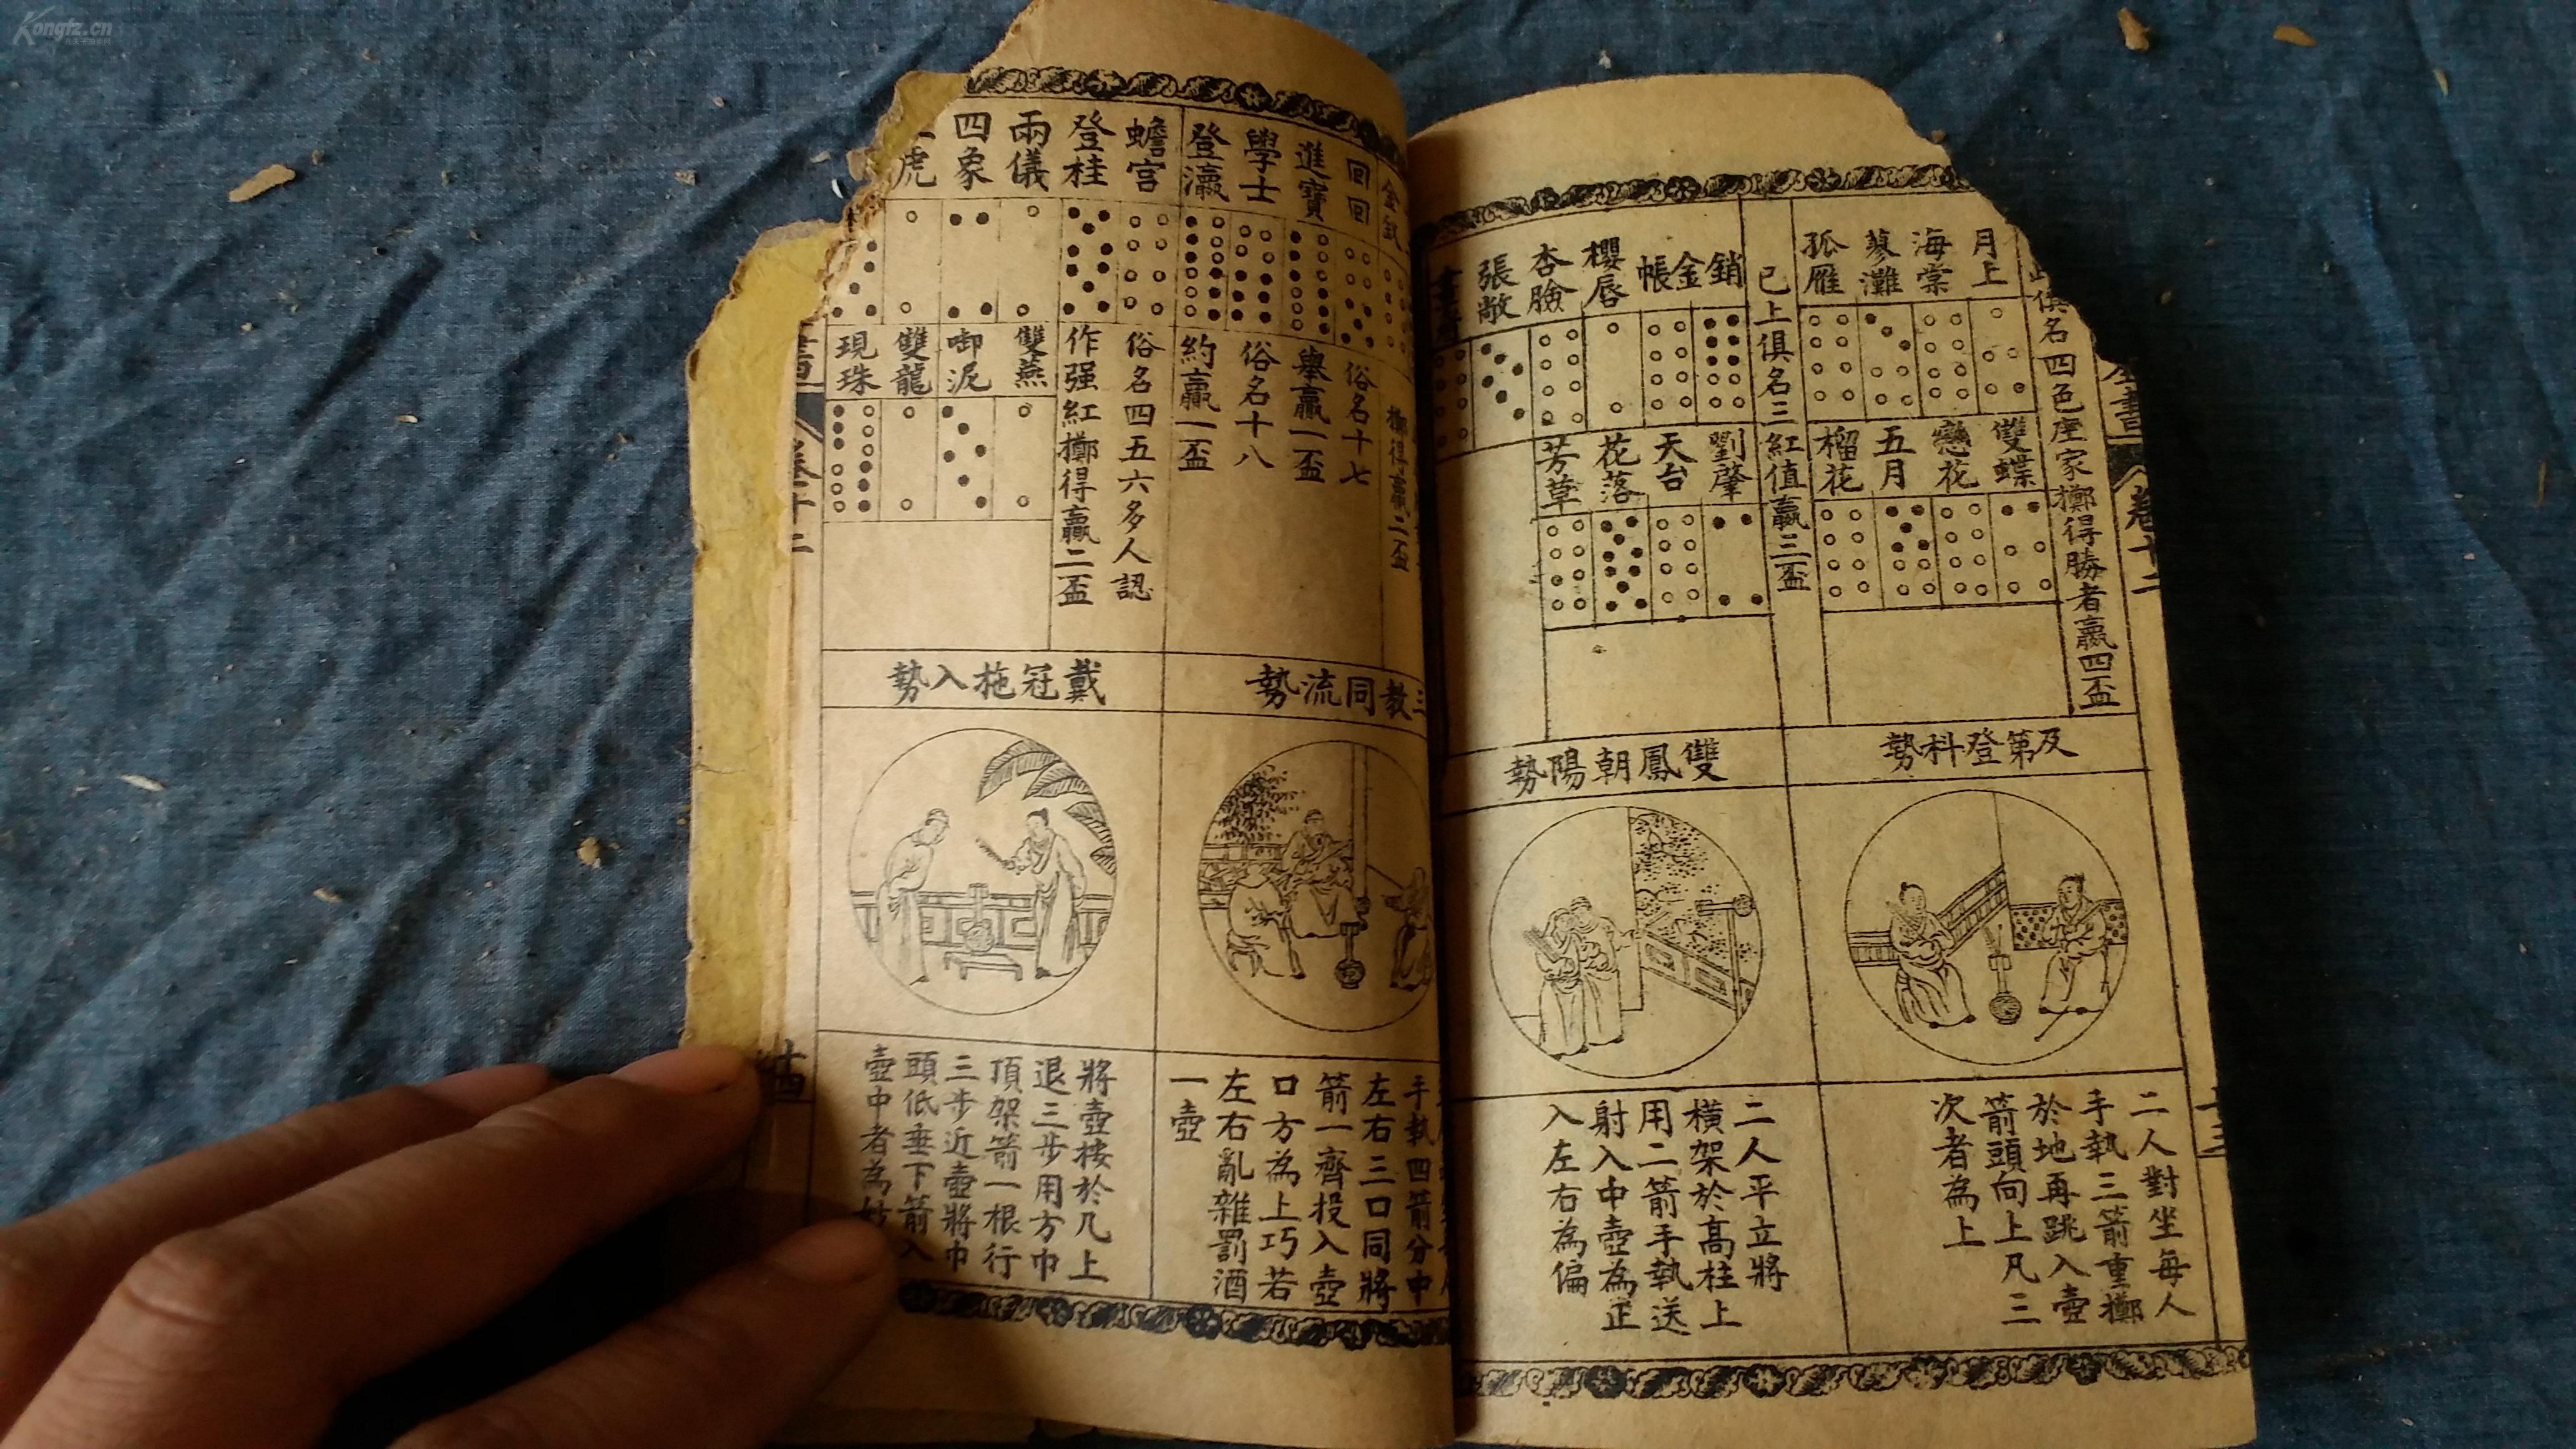 Kongfz.cn
俱名四色座家擲得勝者贏四盃
月上
海棠
蓼灘
孤雁
雙蝶
戀花
五月
榴花
已上俱名三紅值贏三盃
銷金帳
櫻唇
杏臉
張敞
劉肇
天台
花落
芳草
及第登科勢
二人對坐每人
手執三箭重擲
於地再跳入壺
箭頭向上凡三
次者為上
雙鳳朝陽勢
二人平立將
橫架於高柱上
用二箭手執送
射入中壺為正
入左右為偏
卷十二
十三
回回
進寶
學士
登瀛
俗名十七
舉贏一盃
俗名十八
約贏一盃
擲得贏二盃
蟾宮
登桂
俗名四五六多人認
作强紅擲得贏二盃
兩儀
四象
虎
雙燕
啣泥
雙龍
現珠
三教同流勢
手執四箭分中
左右三口同將
箭一齊投入壺
口方為上巧若
左右亂雜罰酒
一壺
戴冠施入勢
將壺按於几上
退三步用方巾
頂架箭一根行
三步近壺將巾
頭低垂下箭入
壺中者為